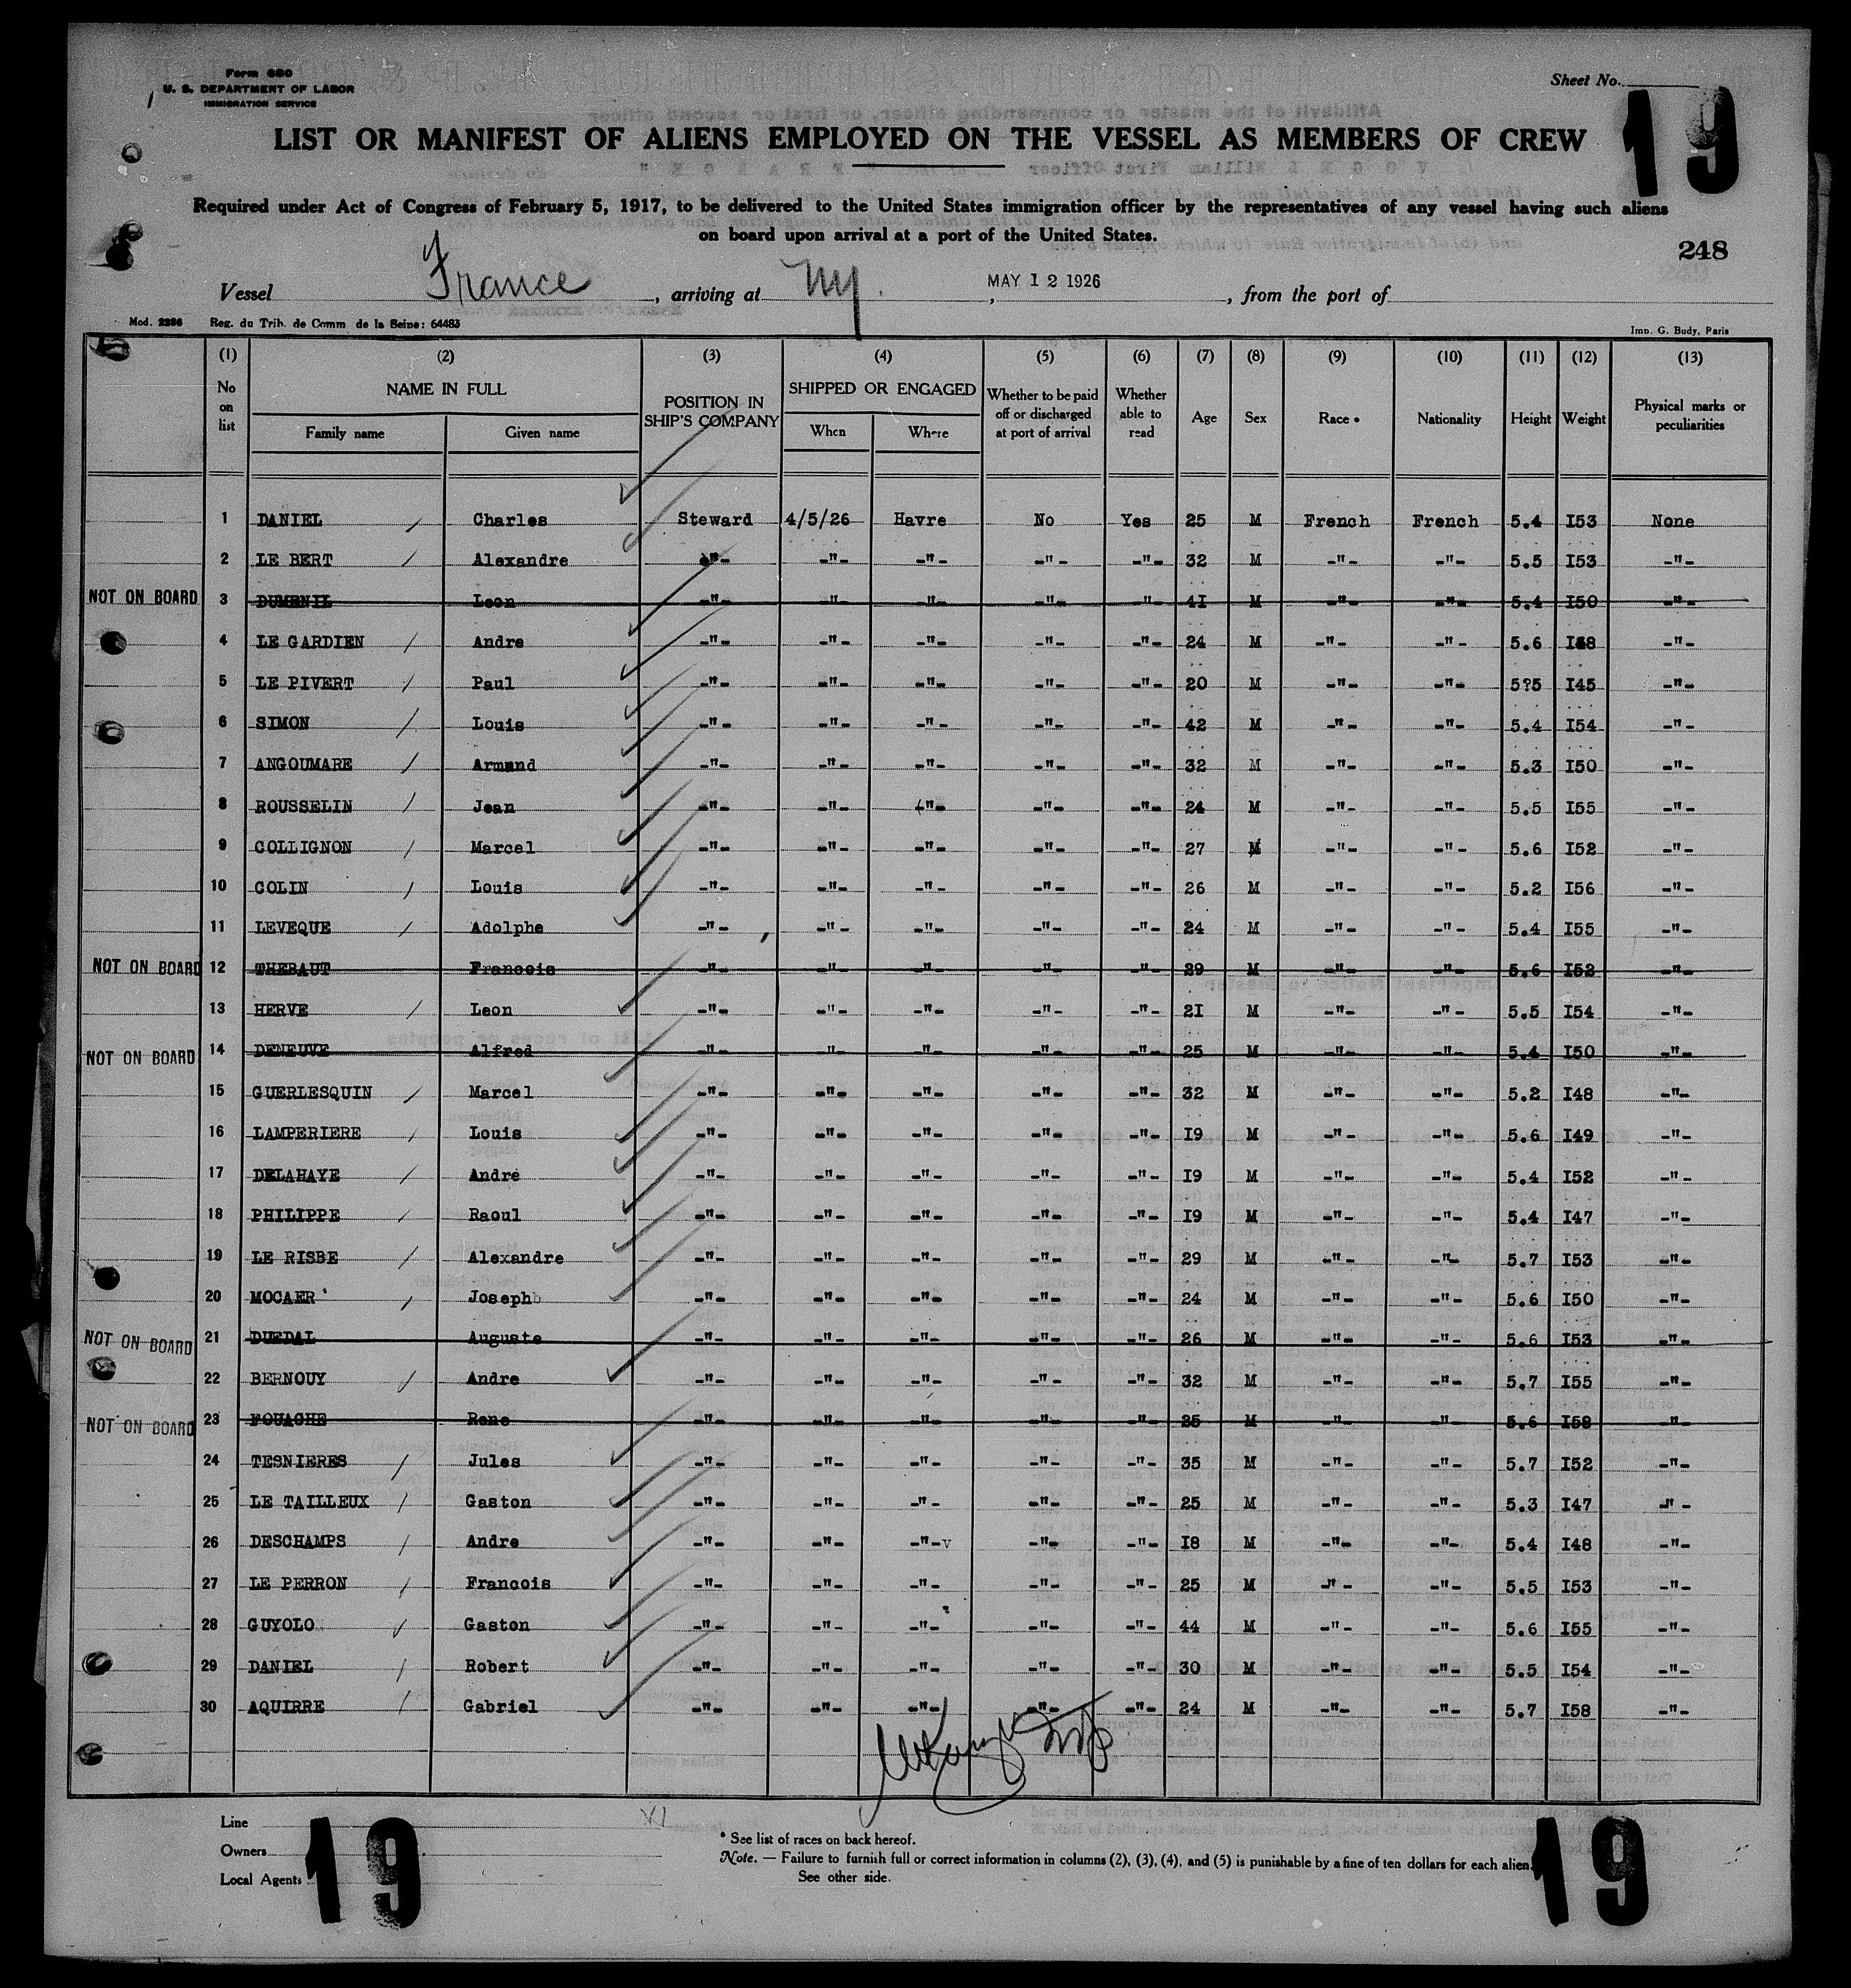 Form 680
U. S. DEPARTMENT OF LABOR
IMMIGRATION SERVICE
Sheet No.
19
LIST OR MANIFEST OF ALIENS EMPLOYED ON THE VESSEL AS MEMBERS OF CREW
Required under Act of Congress of February 5, 1917, to be delivered to the United States immigration officer by the representatives of any vessel having such aliens
on board upon arrival at a port of the United States.
248
Vessel France, arriving at NY. , MAY 12 1926, from the port of
Mod. 2286 Reg. du Trib. de Comm. de la Seine: 64483 Imp. G. Budy, Paris
(1) (2) (3) (4) (5) (6) (7) (8) (9) (10) (11) (12) (13)
No on list NAME IN FULL Family name Given name POSITION IN SHIP'S COMPANY SHIPPED OR ENGAGED When Where Whether to be paid off or discharged at port of arrival Whether able to read Age Sex Race * Nationality Height Weight Physical marks or peculiarities
1 DANIEL / Charles Steward 4/5/26 Havre No Yes 25 M French French 5.4 I53 None
2 LE BERT / Alexandre -"- -"- -"- -"- -"- 32 M -"- -"- 5.5 I53 -"-
NOT ON BOARD 3 DUMENIL Leon -"- -"- -"- -"- -"- 4I M -"- -"- 5.4 I50 -"-
4 LE GARDIEN / Andre -"- -"- -"- -"- -"- 24 M -"- -"- 5.6 I48 -"-
5 LE PIVERT / Paul -"- -"- -"- -"- -"- 20 M -"- -"- 5?5 I45 -"-
6 SIMON / Louis -"- -"- -"- -"- -"- 42 M -"- -"- 5.4 I54 -"-
7 ANGOUMARE / Armand -"- -"- -"- -"- -"- 32 M -"- -"- 5.3 I50 -"-
8 ROUSSELIN / Jean -"- -"- -"- -"- -"- 24 M -"- -"- 5.5 I55 -"-
9 COLLIGNON / Marcel -"- -"- -"- -"- -"- 27 M -"- -"- 5.6 I52 -"-
10 COLIN / Louis -"- -"- -"- -"- -"- 26 M -"- -"- 5.2 I56 -"-
11 LEVEQUE / Adolphe -"- -"- -"- -"- -"- 24 M -"- -"- 5.4 I55 -"-
NOT ON BOARD 12 THEBAUT Francois -"- -"- -"- -"- -"- 29 M -"- -"- 5.6 I52 -"-
13 HERVE / Leon -"- -"- -"- -"- -"- 2I M -"- -"- 5.5 I54 -"-
NOT ON BOARD 14 DENEUVE Alfred -"- -"- -"- -"- -"- 25 M -"- -"- 5.4 I50 -"-
15 GUERLESQUIN / Marcel -"- -"- -"- -"- -"- 32 M -"- -"- 5.2 I48 -"-
16 LAMPERIERE / Louis -"- -"- -"- -"- -"- I9 M -"- -"- 5.6 I49 -"-
17 DELAHAYE / Andre -"- -"- -"- -"- -"- I9 M -"- -"- 5.4 I52 -"-
18 PHILIPPE / Raoul -"- -"- -"- -"- -"- I9 M -"- -"- 5.4 I47 -"-
19 LE RISBE / Alexandre -"- -"- -"- -"- -"- 29 M -"- -"- 5.7 I53 -"-
20 MOCAER / Joseph -"- -"- -"- -"- -"- 24 M -"- -"- 5.6 I50 -"-
NOT ON BOARD 21 DUEDAL Auguste -"- -"- -"- -"- -"- 26 M -"- -"- 5.6 I53 -"-
22 BERNOUY / Andre -"- -"- -"- -"- -"- 32 M -"- -"- 5.7 I55 -"-
NOT ON BOARD 23 FOUACHE Rene -"- -"- -"- -"- -"- 25 M -"- -"- 5.6 I58 -"-
24 TESNIERES / Jules -"- -"- -"- -"- -"- 35 M -"- -"- 5.7 I52 -"-
25 LE TAILLEUX / Gaston -"- -"- -"- -"- -"- 25 M -"- -"- 5.3 I47 -"-
26 DESCHAMPS / Andre -"- -"- -"- -"- -"- I8 M -"- -"- 5.4 I48 -"-
27 LE PERRON / Francois -"- -"- -"- -"- -"- 25 M -"- -"- 5.5 I53 -"-
28 GUYOLO / Gaston -"- -"- -"- -"- -"- 44 M -"- -"- 5.6 I55 -"-
29 DANIEL / Robert -"- -"- -"- -"- -"- 30 M -"- -"- 5.5 I54 -"-
30 AQUIRRE / Gabriel -"- -"- -"- -"- -"- 24 M -"- -"- 5.7 I58 -"-
Line
Owners
Local Agents
19
* See list of races on back hereof.
Note. — Failure to furnish full or correct information in columns (2), (3), (4), and (5) is punishable by a fine of ten dollars for each alien.
See other side.
19